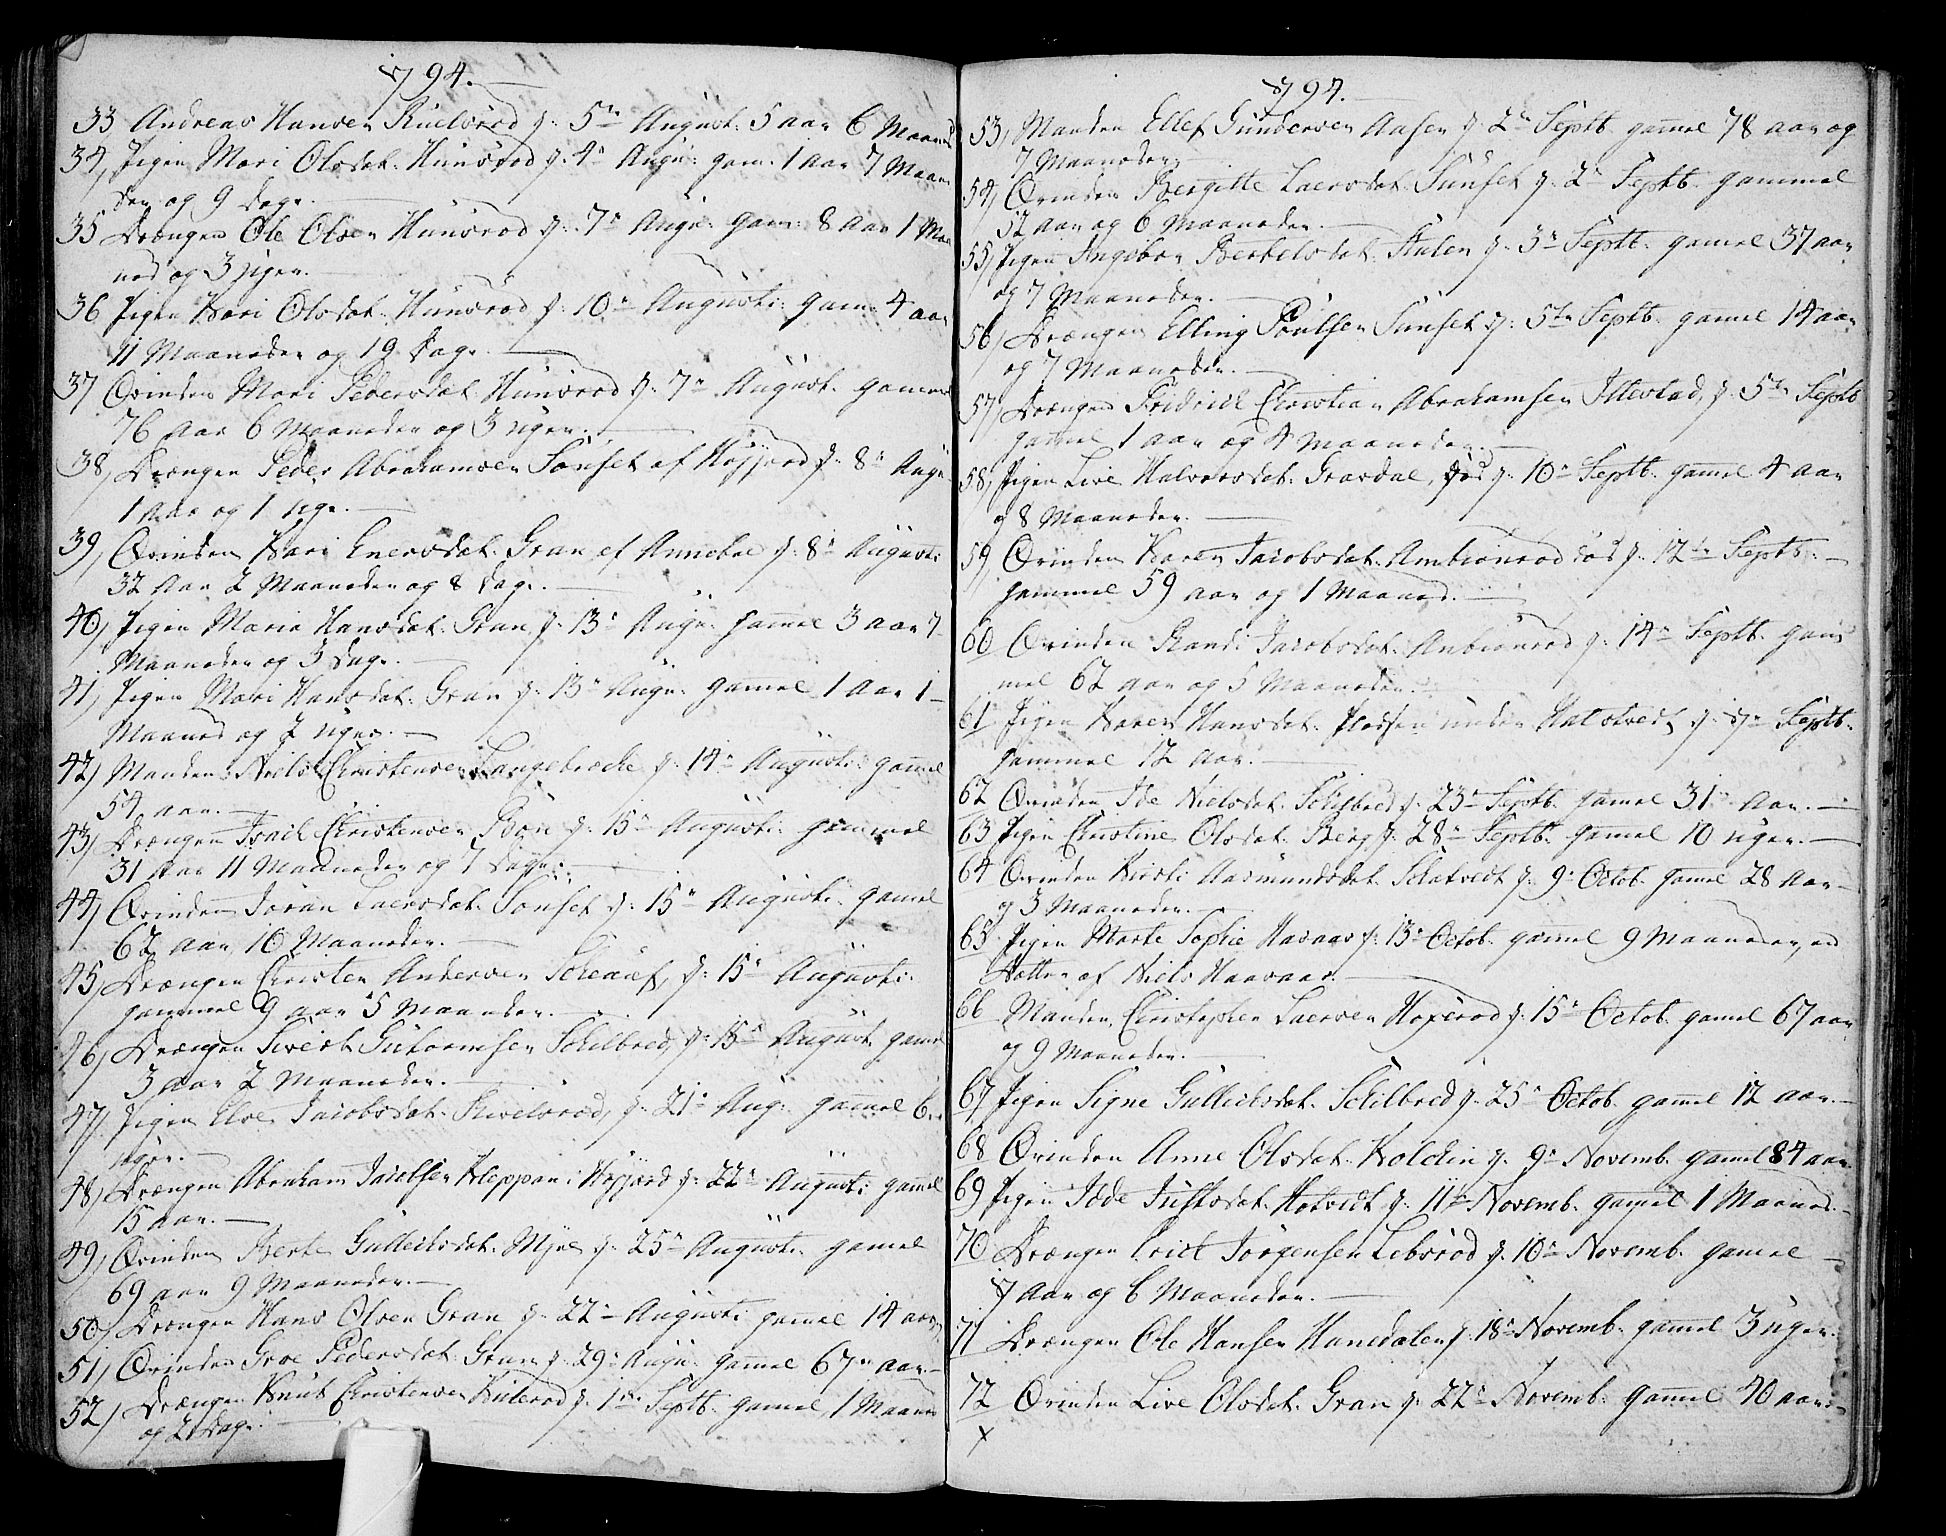 1794.
33 Andreas Hansen Ruelsrød d: 5te August: 5 aar 6 Maaned
34, Pigen Mari Olsdat: Hunsrød d: 4de Augu: gam: 1 aar 7 Maane
der og 9 dage.
35 Drængen Ole Olsen Hunsrød d: 7de Augu: gam: 8 aar 1 Maa
ned og 3 uger.
36 Pigen Kari Olsdat: Hunsrød d: 10de Augusti: gam: 4 aar
11 Maaneder og 19 Dage.
37 Qvinden Mari Pedersdat: Hunsrød d: 7de August: gammel
76 aar 6 Maaneder og 3 uger.
38, Drængen Peder Abrahamsen Sønset af Høyjord d: 8de Augu:
1 aar og 1 uge.
39, Qvinden Kari Enersdat: Gran af Anneboe d: 8de Augusti:
32 aar 2 Maaneder og 8 dage.
40, Pigen Maria Hansdat: Gran d: 13de Augu: gamel 3 aar 7
Maaneder og 3 dage.
41, Pigen Mari Hansdat: Gran d: 13de Augu: gamel 1 aar 1
Maaned og 2 uger.
42, Manden Niels Christensen Langebrecke d: 14de Augusti: gamel
54 aar.
43, Drængen Isach Christensen Bøn d: 15de Augusti: gammel
31 aar 11 Maaneder og 7 Dage.
44, Qvinden Joran Laersdat: Sønset d: 15de Augusti: gamel
62 aar, 10 Maaneder.
45, Drængen Christen Andersen Scheauf, d: 15de Augusti:
gammel 9 aar 5 Maaneder.
46, Drængen Sivert Gutormsen Schelbred, d: 15de August: gamel
3 aar 2 Maaneder.
47, Pigen Else Jacobsdat: Ruelsrød, d: 21de Aug: gamel 6
uger.
48, Drængen Abraham Jacobsen Kleppan i Høyjord d: 22de Augusti: gamel
15 aar.
49, Qvinden Berte Gulleichsdat: Myre d: 25de Augusti: gamel
69 aar 9 Maaneder.
50, Drængen Hans Olsen Gran d: 22de Augusti: gamel 14 aar.
51, Qvinden Groe Pedersdat: Gran d: 29de Augu: gamel 67 aar
52, Drængen Knut Christensen Hulerød d: 1te Septb: gamel 1 Maaned
og 2 Dage.
1794.
53, Manden Ellef Gundersen Aasen d: 2de Septb: gamel 78 aar og
7 Maaneder.
54, Qvinden Bergitte Laersdat: Sunset d: 2de Septb: gammel
52 aar og 6 Maaneder.
55, Pigen Ingebor Bertelsdat: Stulen d: 3de Septb: gamel 37 aar
og 7 Maaneder.
56, Drængen Elling Poulsen Sunset d: 5te Septb: gamel 14 aar
og 7 Maaneder.
57, Drængen Fridrich Christian Abrahamsen Ittestad, d: 5te Septb
gamel 1 aar og 4 Maaneder.
58, Pigen Live Halvorsdat: Gravdal, død d: 10de Septb: gamel 4 aar
og 8 Maaneder.
59, Qvinden Karen Jacobsdat: Ambiønrød død d: 12te Septb:
gammel 59 aar og 1 Maaned.
60 Qvinden Randi Jacobsdat: Anbiønrød d: 14de Septb: gam
mel 62 aar og 5 Maaneder.
61 Pigen Karen Hansdat: Pladsen under Hatstvedt d: 17de Septb:
gammel 12 aar.
62 Qvinden Ide Nielsdat: Schelbred d: 23de Septb: gamel 31 aar.
63 Pigen Christine Olsdat: Berg d: 28de Septb: gamel 10 uger.
64 Qvinden Kirsti Aasmundsdat: Schatvedt d: 9de Octob: gamel 28 aar
og 3 Maaneder.
65 Pigen Marte Sophie Haaaas d: 13de Octob: gamel 9 Maaneder, en
Datter af Niels Haavaas.
66 Manden Christopher Laersen Høyerød d: 15de Octob: gamel 67 aar
og 9 Maaneder.
67 Pigen Signe Gulleichsdat: Schilbred d: 25de Octob: gamel 12 aar.
68 Qvinden Anne Olsdat: Kolckin d: 9de Novemb: gamel 84 aar
69 Pigen Idde Justsdat: Hotvedt d: 11te Novemb: gamel 1 Maaned.
70 Drængen Erich Jørgensen Lebsrød d: 10de Novemb: gamel
17 aar og 6 Maaneder.
71 Drængen Ole Hansen Hanedalen d: 18de Novemb: gamel 3 uger.
72 Qvinden Live Olsdat: Gran d: 22de Novemb: gamel 40 aar.
x